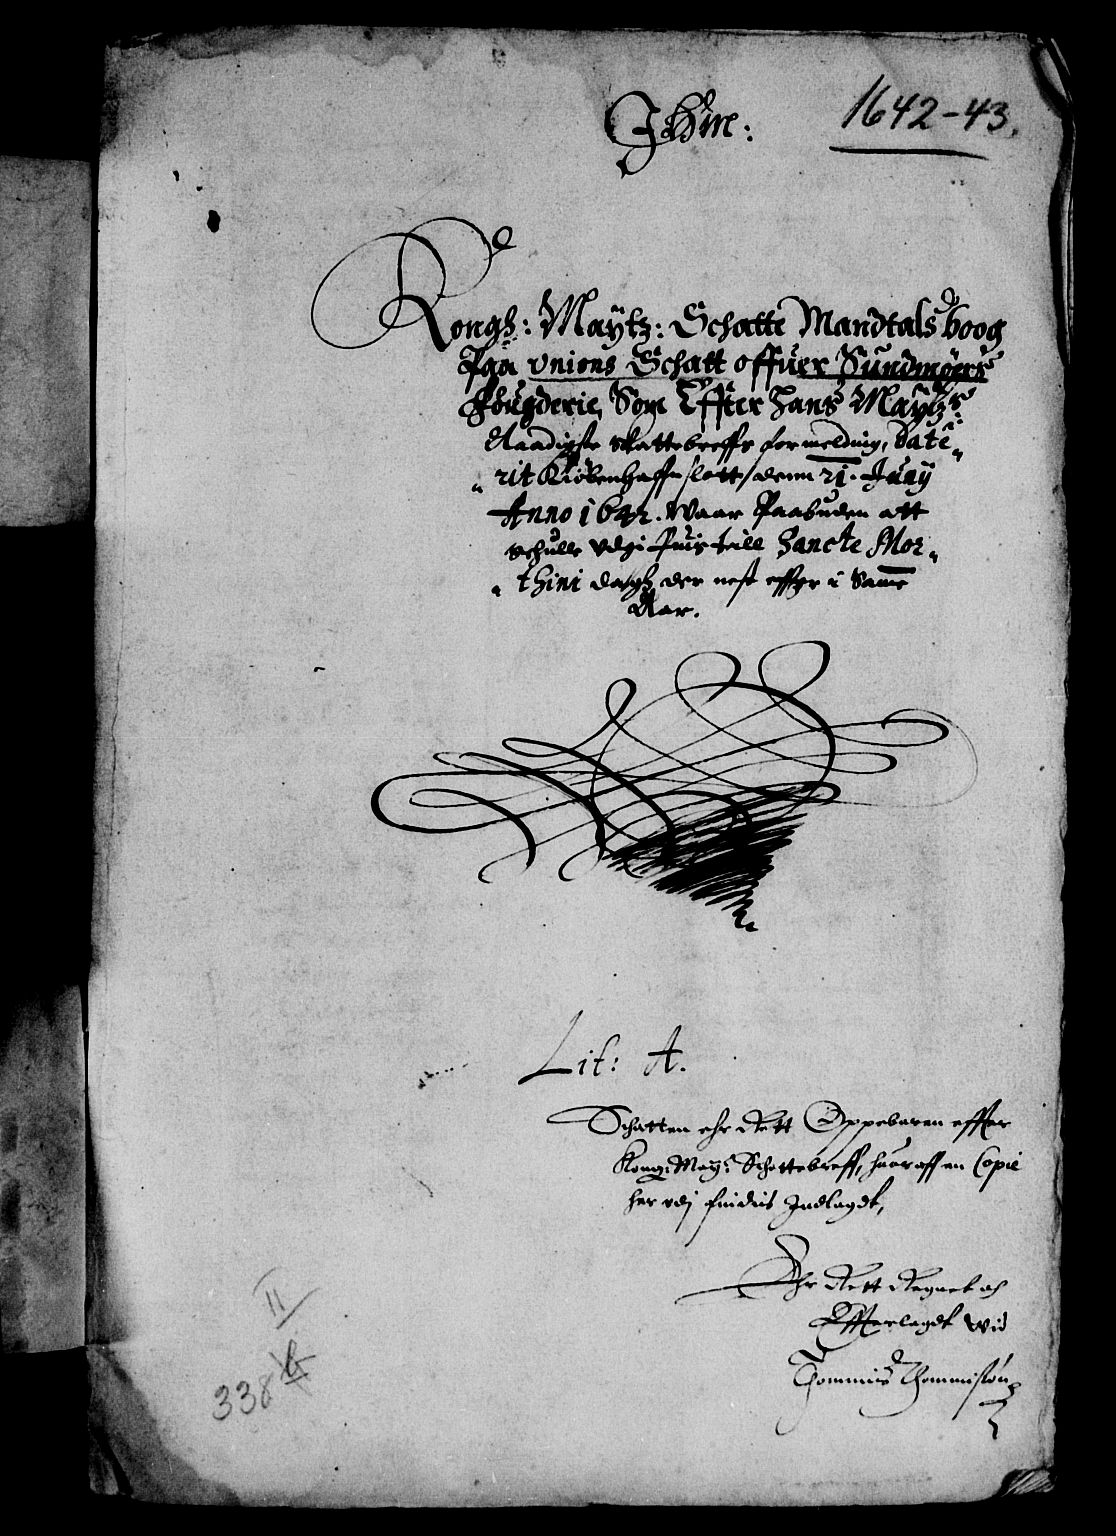 Jhûm:
1642-43.
Kongh: Maÿtz: Schatte Mandtals boog
Paa vnions Schatt offuer Sundmøers
fougderie, Som Effter Hans Maÿtz:
Naadigste skattebreffs formelding, Date„
„ rit Kiøbenhaffns slott, denn 21. Junÿ
Anno 1642. Waar Paabuden att
schulle vdgifuis till Sancte Mor„
„ thini dagh der nest effter i Samme
Aar.
Lit: A.
Schatten ehr Rett Oppebaren effter
Kong: May: Schattebreff, huoraff en Copie
her vdj findis Indlagdt,
Ehr Rett Regnet och
Efferlagdt wid
Thommis Thommissøn
II
338 b